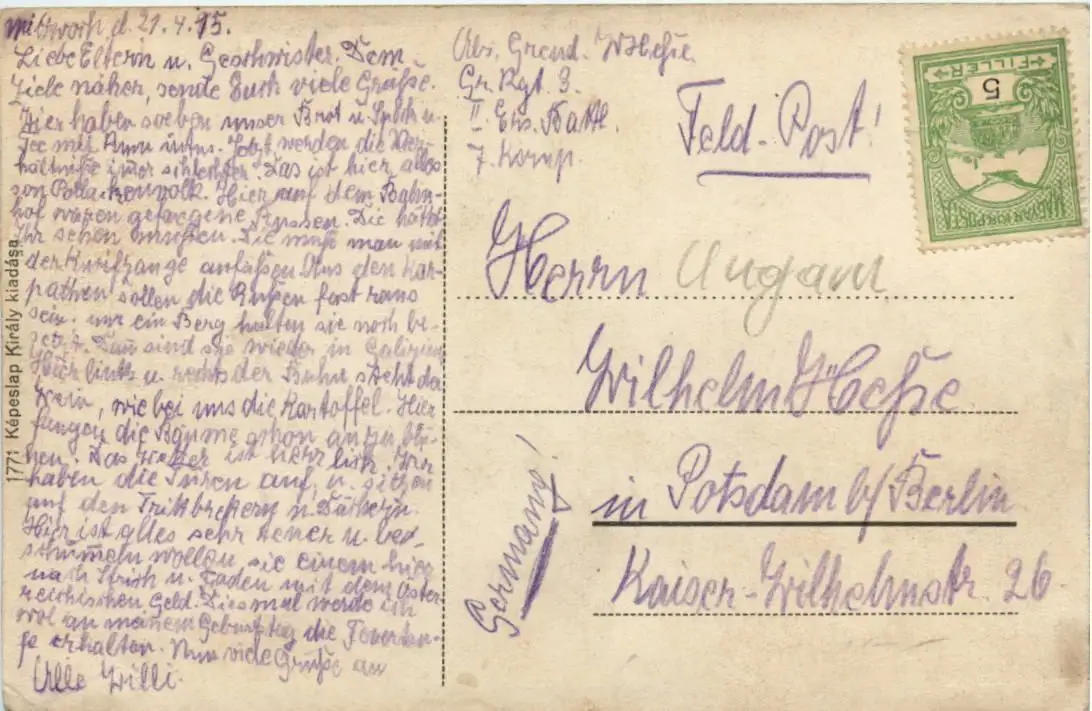 Mittwoch d. 21.4.15.
Liebe Eltern u. Geschwister. Dem
Ziele näher, sende Euch viele Grüße.
Hier haben soeben unser Brot u. Speck u.
Tee mit Rum intus. Jetzt werden die Ver-
hältniße imer schlechter. Das ist hier alles
son Pollackenvolk. Hier auf dem Bahn-
hof waren gefangene Russen. Die hättet
Ihr sehen müßen. Die muß man mit
der Kneifzange anfaßen. Aus den Kar-
pathen sollen die Rußen fast raus
sein. nur ein Berg halten sie noch be-
setzt. Dan sind sie wieder in Galizien
Hier links u. rechts der Bahn steht der
Wein, wie bei uns die Kartoffel. Hier
fangen die Bäume schon an zu blü-
hen. Das Wetter ist herrlich. Wir
haben die Türen auf, u. sitzen
auf den Trittbrettern u. Dächern.
Hier ist alles sehr teuer u. be-
schummeln wollen sie einem hier
nach Strich u. Faden mit dem Öster
reichischen Geld. Diesmal werde ich
wol an meinem Geburtstag die Feuertau-
fe erhalten. Nun viele Grüße an
Alle Willi.
Abs. Grend. W. Heße
Gr. Rgt. 3.
II Ers. Batl.
7. Komp.
Feld-Post!
Herrn
Wilhelm Heße
in Potsdam b/Berlin
Kaiser-Wilhelmstr. 26
Germany!
1771 Képeslap Király kiadása
MAGYAR KIR. POSTA
5
FILLER